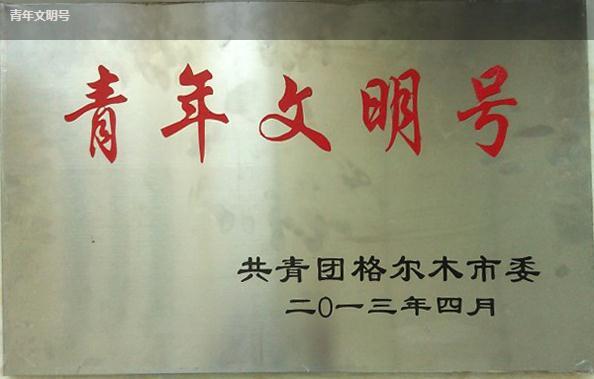 青年文明号
青年文明号
共青团格尔木市委
二〇一三年四月